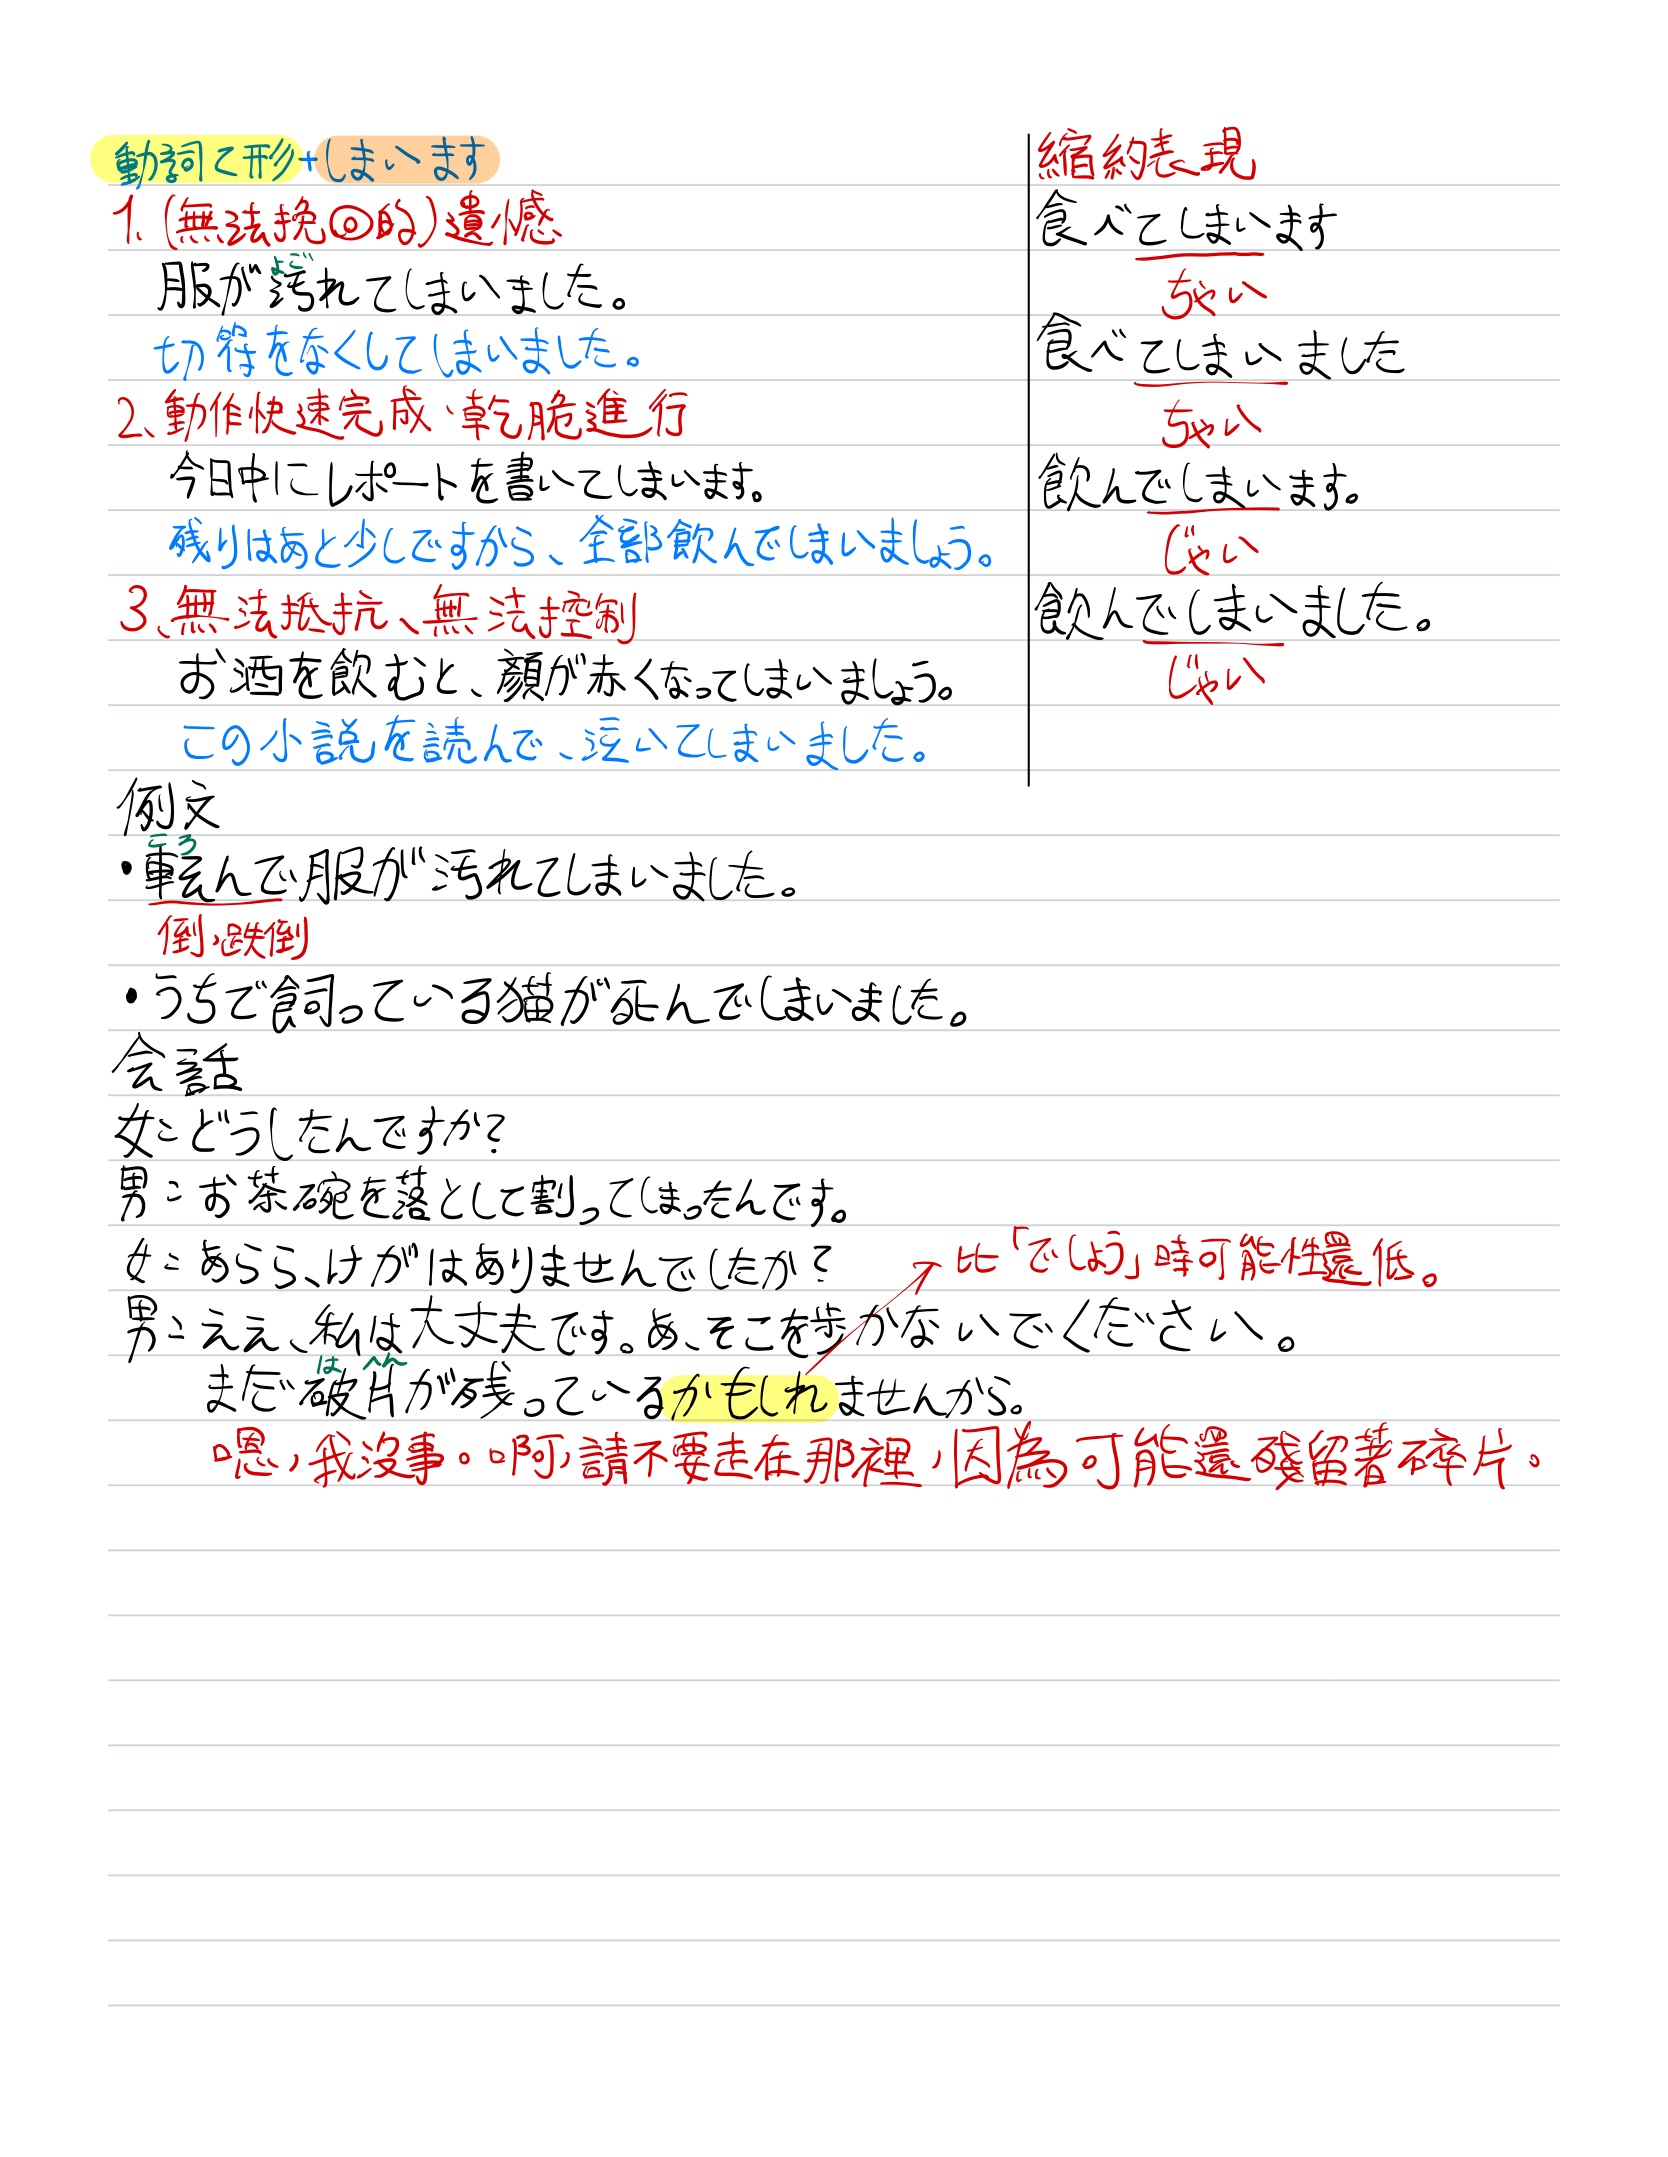 動詞て形+しまいます
1.(無法挽回的)遺憾
よご
服が汚れてしまいました。
切符をなくしてしまいました。
2、動作快速完成、乾脆進行
今日中にレポートを書いてしまいます。
残りはあと少しですから、全部飲んでしまいましょう。
3、無法抵抗、無法控制
お酒を飲むと、顔が赤くなってしまいましょう。
この小説を読んで、泣いてしまいました。
縮約表現
食べてしまいます
ちゃい
食べてしまいました
ちゃい
飲んでしまいます。
じゃい
飲んでしまいました。
じゃい
例文
ころ
・転んで服が汚れてしまいました。
倒,跌倒
・うちで飼っている猫が死んでしまいました。
会話
女:どうしたんですか?
男:お茶碗を落として割ってしまったんです。
女:あらら、けがはありませんでしたか?
比「でしょう」時可能性還低。
男:ええ、私は大丈夫です。あ、そこを歩かないでください。
は へん
まだ破片が残っているかもしれませんから。
嗯,我沒事。啊,請不要走在那裡,因為可能還殘留著碎片。